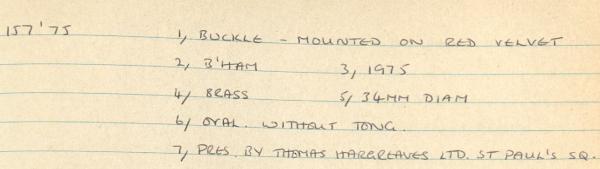 157'75 1, BUCKLE - MOUNTED ON RED VELVET
2, B'HAM 3, 1975
4/ BRASS 5/ 34MM DIAM
6/ OVAL. WITHOUT TONG.
7, PRES. BY THOMAS HARGREAVES LTD. ST PAUL'S SQ.